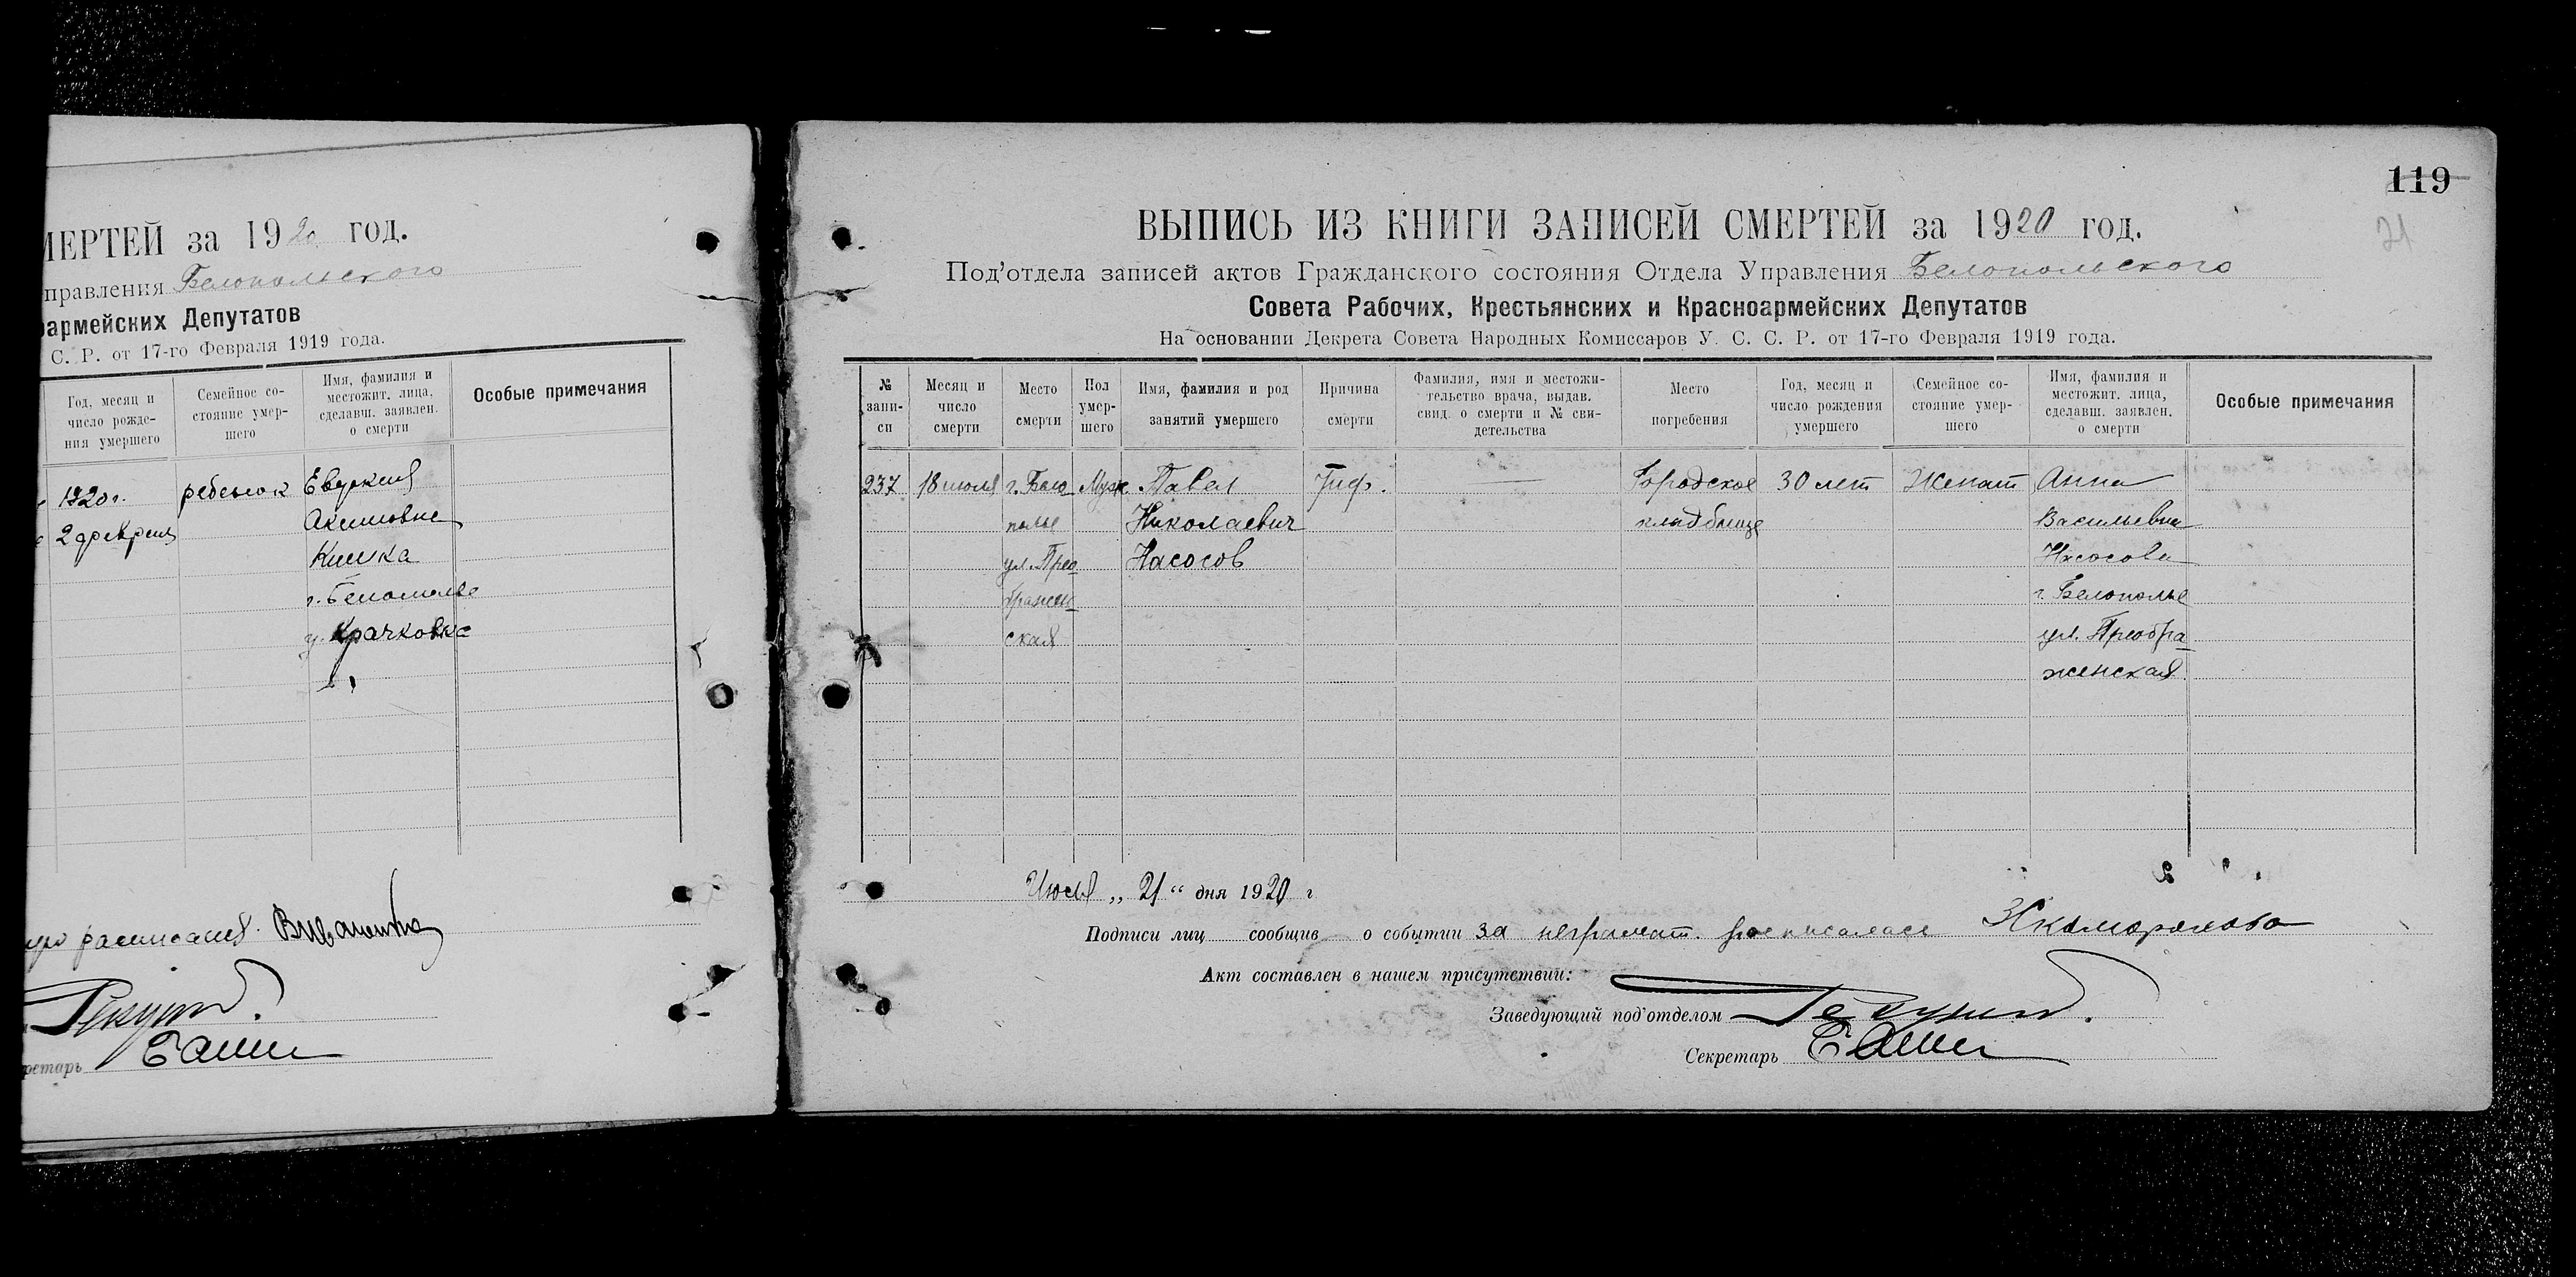 МЕРТЕЙ за 1920 год.
правления Белопольского
оармейских Депутатов
С. Р. от 17-го Февраля 1919 года.
Год, месяц и
число рожде-
ния умершего
Семейное со-
стояние умер-
шего
Имя, фамилия и
местожит. лица,
сделавш. заявлен.
о смерти
Особые примечания
1920 г. ребенок Евдокия
2 февраля Акимовна
Кишка
г. Белополье
у. Крачковка
расписался
ретарь
119
21
ВЫПИСЬ ИЗ КНИГИ ЗАПИСЕЙ СМЕРТЕЙ за 1920 год.
Под'отдела записей актов Гражданского состояния Отдела Управления Белопольского
Совета Рабочих, Крестьянских и Красноармейских Депутатов
На основании Декрета Совета Народных Комиссаров У. С. С. Р. от 17-го Февраля 1919 года.
№
запи-
си
Месяц и
число
смерти
Место
смерти
Пол
умер-
шего
Имя, фамилия и род
занятий умершего
Причина
смерти
Фамилия, имя и местожи-
тельство врача, выдав.
свид. о смерти и № сви-
детельства
Место
погребения
Год, месяц и
число рождения
умершего
Семейное со-
стояние умер-
шего
Имя, фамилия и
местожит. лица,
сделавш. заявлен.
о смерти
Особые примечания
237 18 июля г. Бело Муж. Павел Тиф. Городское 30 лет Женат Анна
полье Николаевич кладбище Васильевна
ул. Прео Насосов Насосова
бражен г. Белополье
ская ул. Преобра
женская
Июля „ 21 “ дня 1920 г
Подписи лиц сообщив о событии за неграмот. расписалась
Акт составлен в нашем присутствии:
Заведующий под'отделом
Секретарь